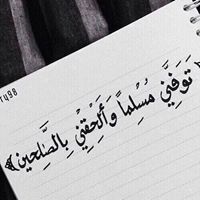 ﴿تَوَفَّنِي مُسْلِماً وَأَلْحِقْنِي بِالصَّٰلِحين﴾